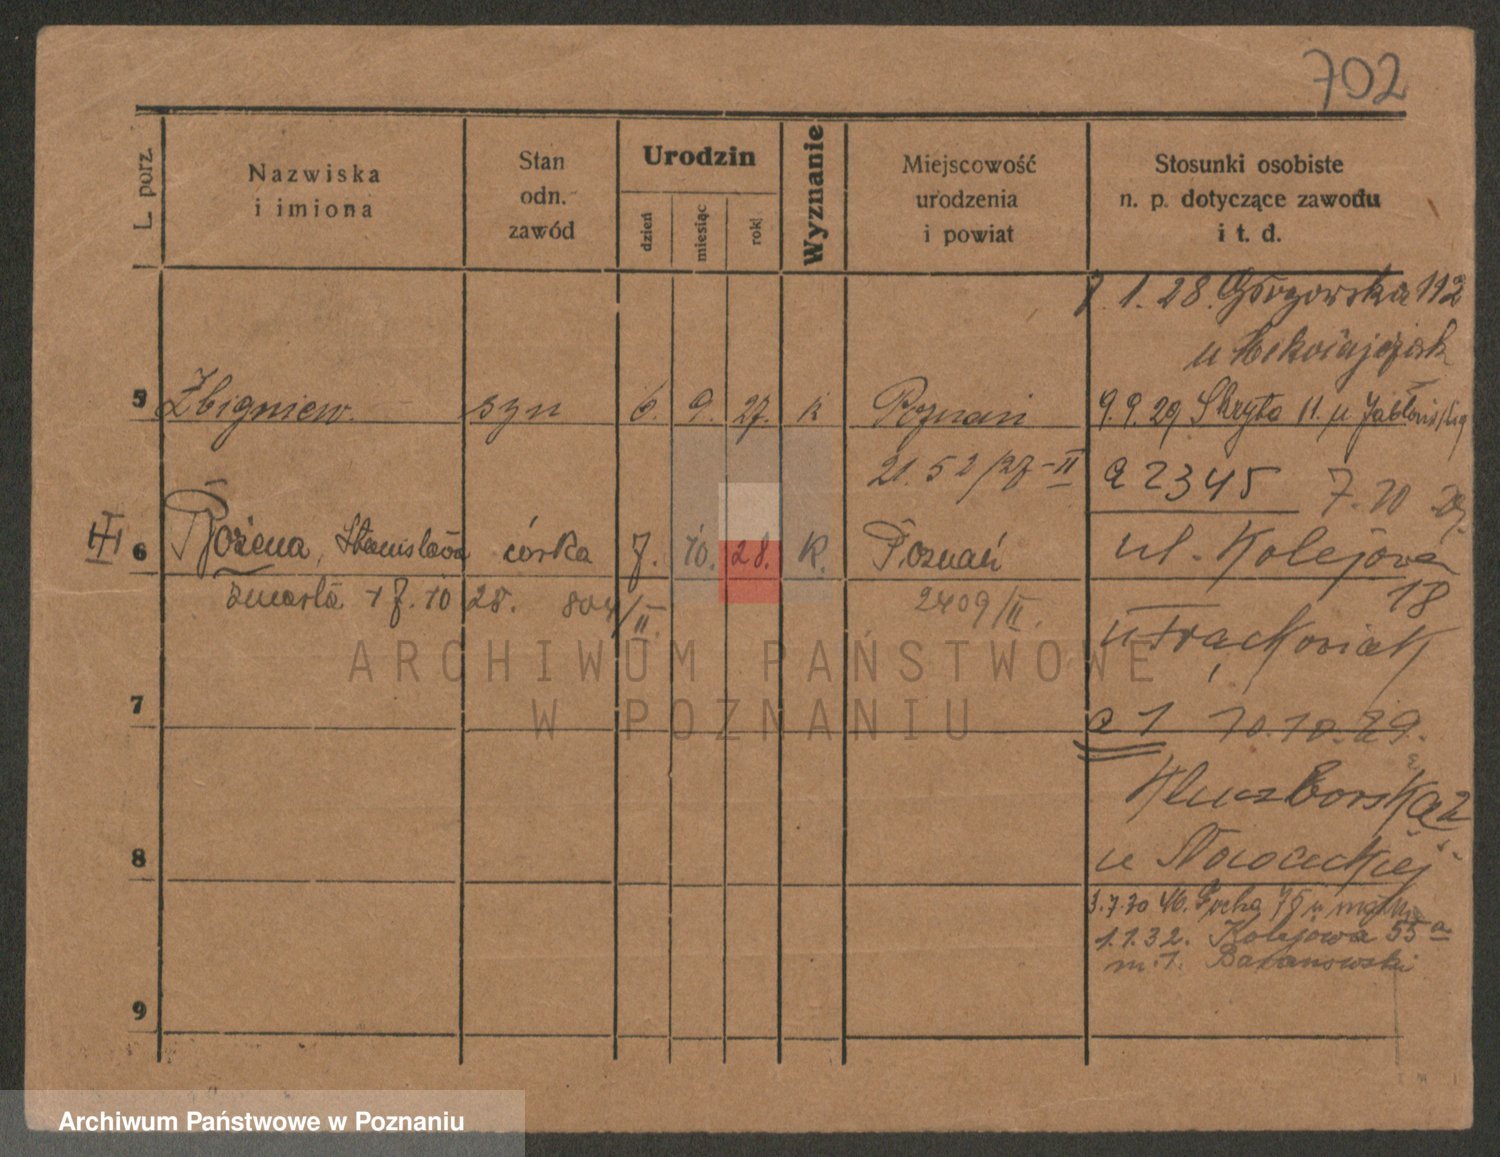 702
L. porz.
Nazwiska
i imiona
Stan
odn.
zawód
Urodzin
dzień
miesiąc
rok
Wyznanie
Miejscowość
urodzenia
i powiat
Stosunki osobiste
n. p. dotyczące zawodu
i t. d.
1. 28. Głogowska 112
u
5 Zbigniew syn 6. 9. 27. k Poznań 9.9.29 Skryta 11. u
21.52/27-II a 2345 7.10 29
6 Bożena, Stanisława córka 7. 10. 28. k. Poznań ul. Kolejowa
18
zmarła † 7.10 28. 804/II 2409/II.
u Frąckowiak
7
a 1 10.10.29.
Kluczborska 2
8 u Nowackiej
3.7.30 75 u
1.1.32. Kolejowa 55a
m. 1. Baranowski
9
ARCHIWUM PAŃSTWOWE
W POZNANIU
Archiwum Państwowe w Poznaniu